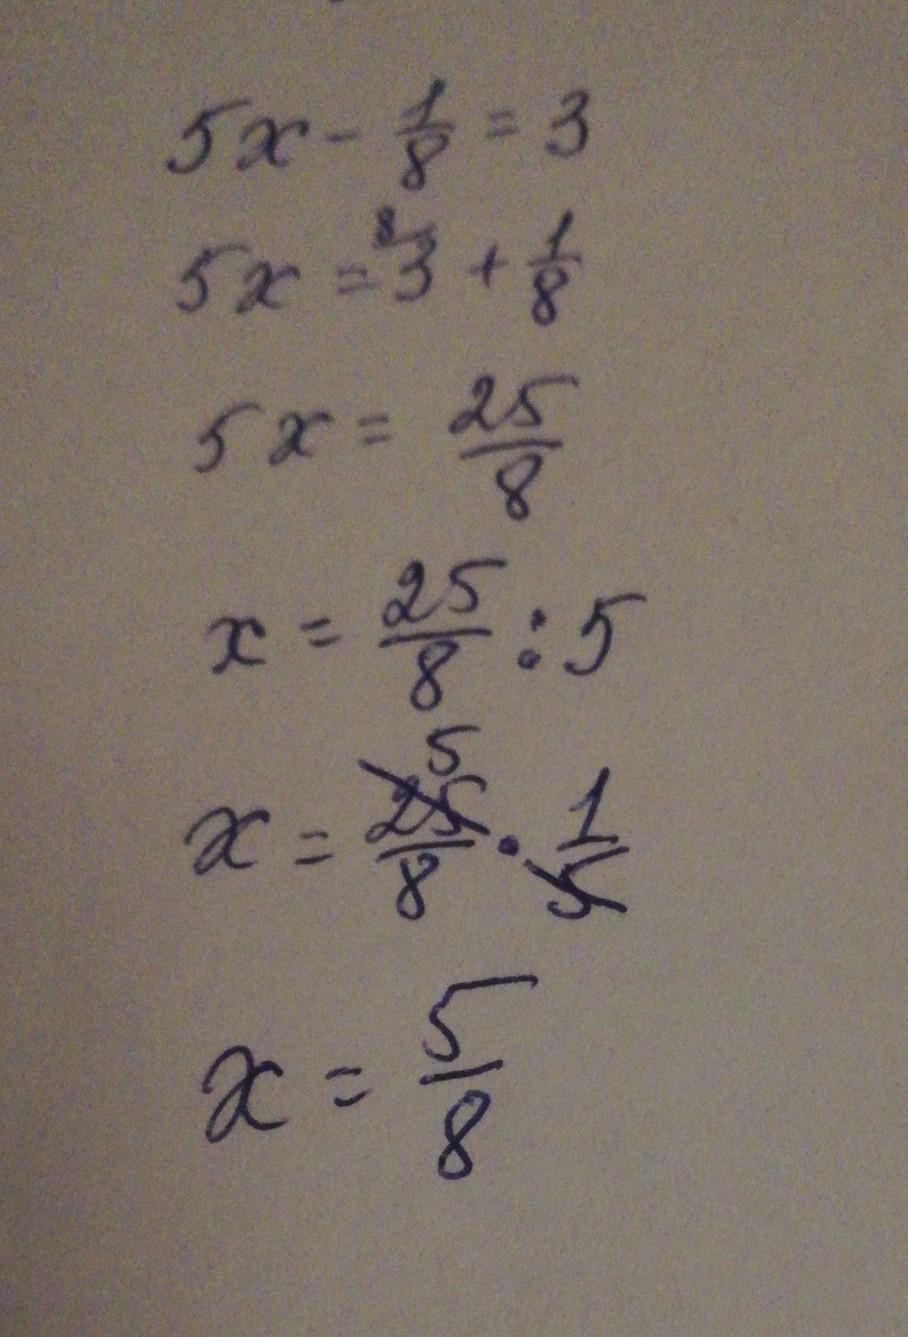 5x - 1/8 = 3
5x = ⁸3 + 1/8
5x = 25/8
x = 25/8 : 5
5
x = 25/8 · 1/5
x = 5/8